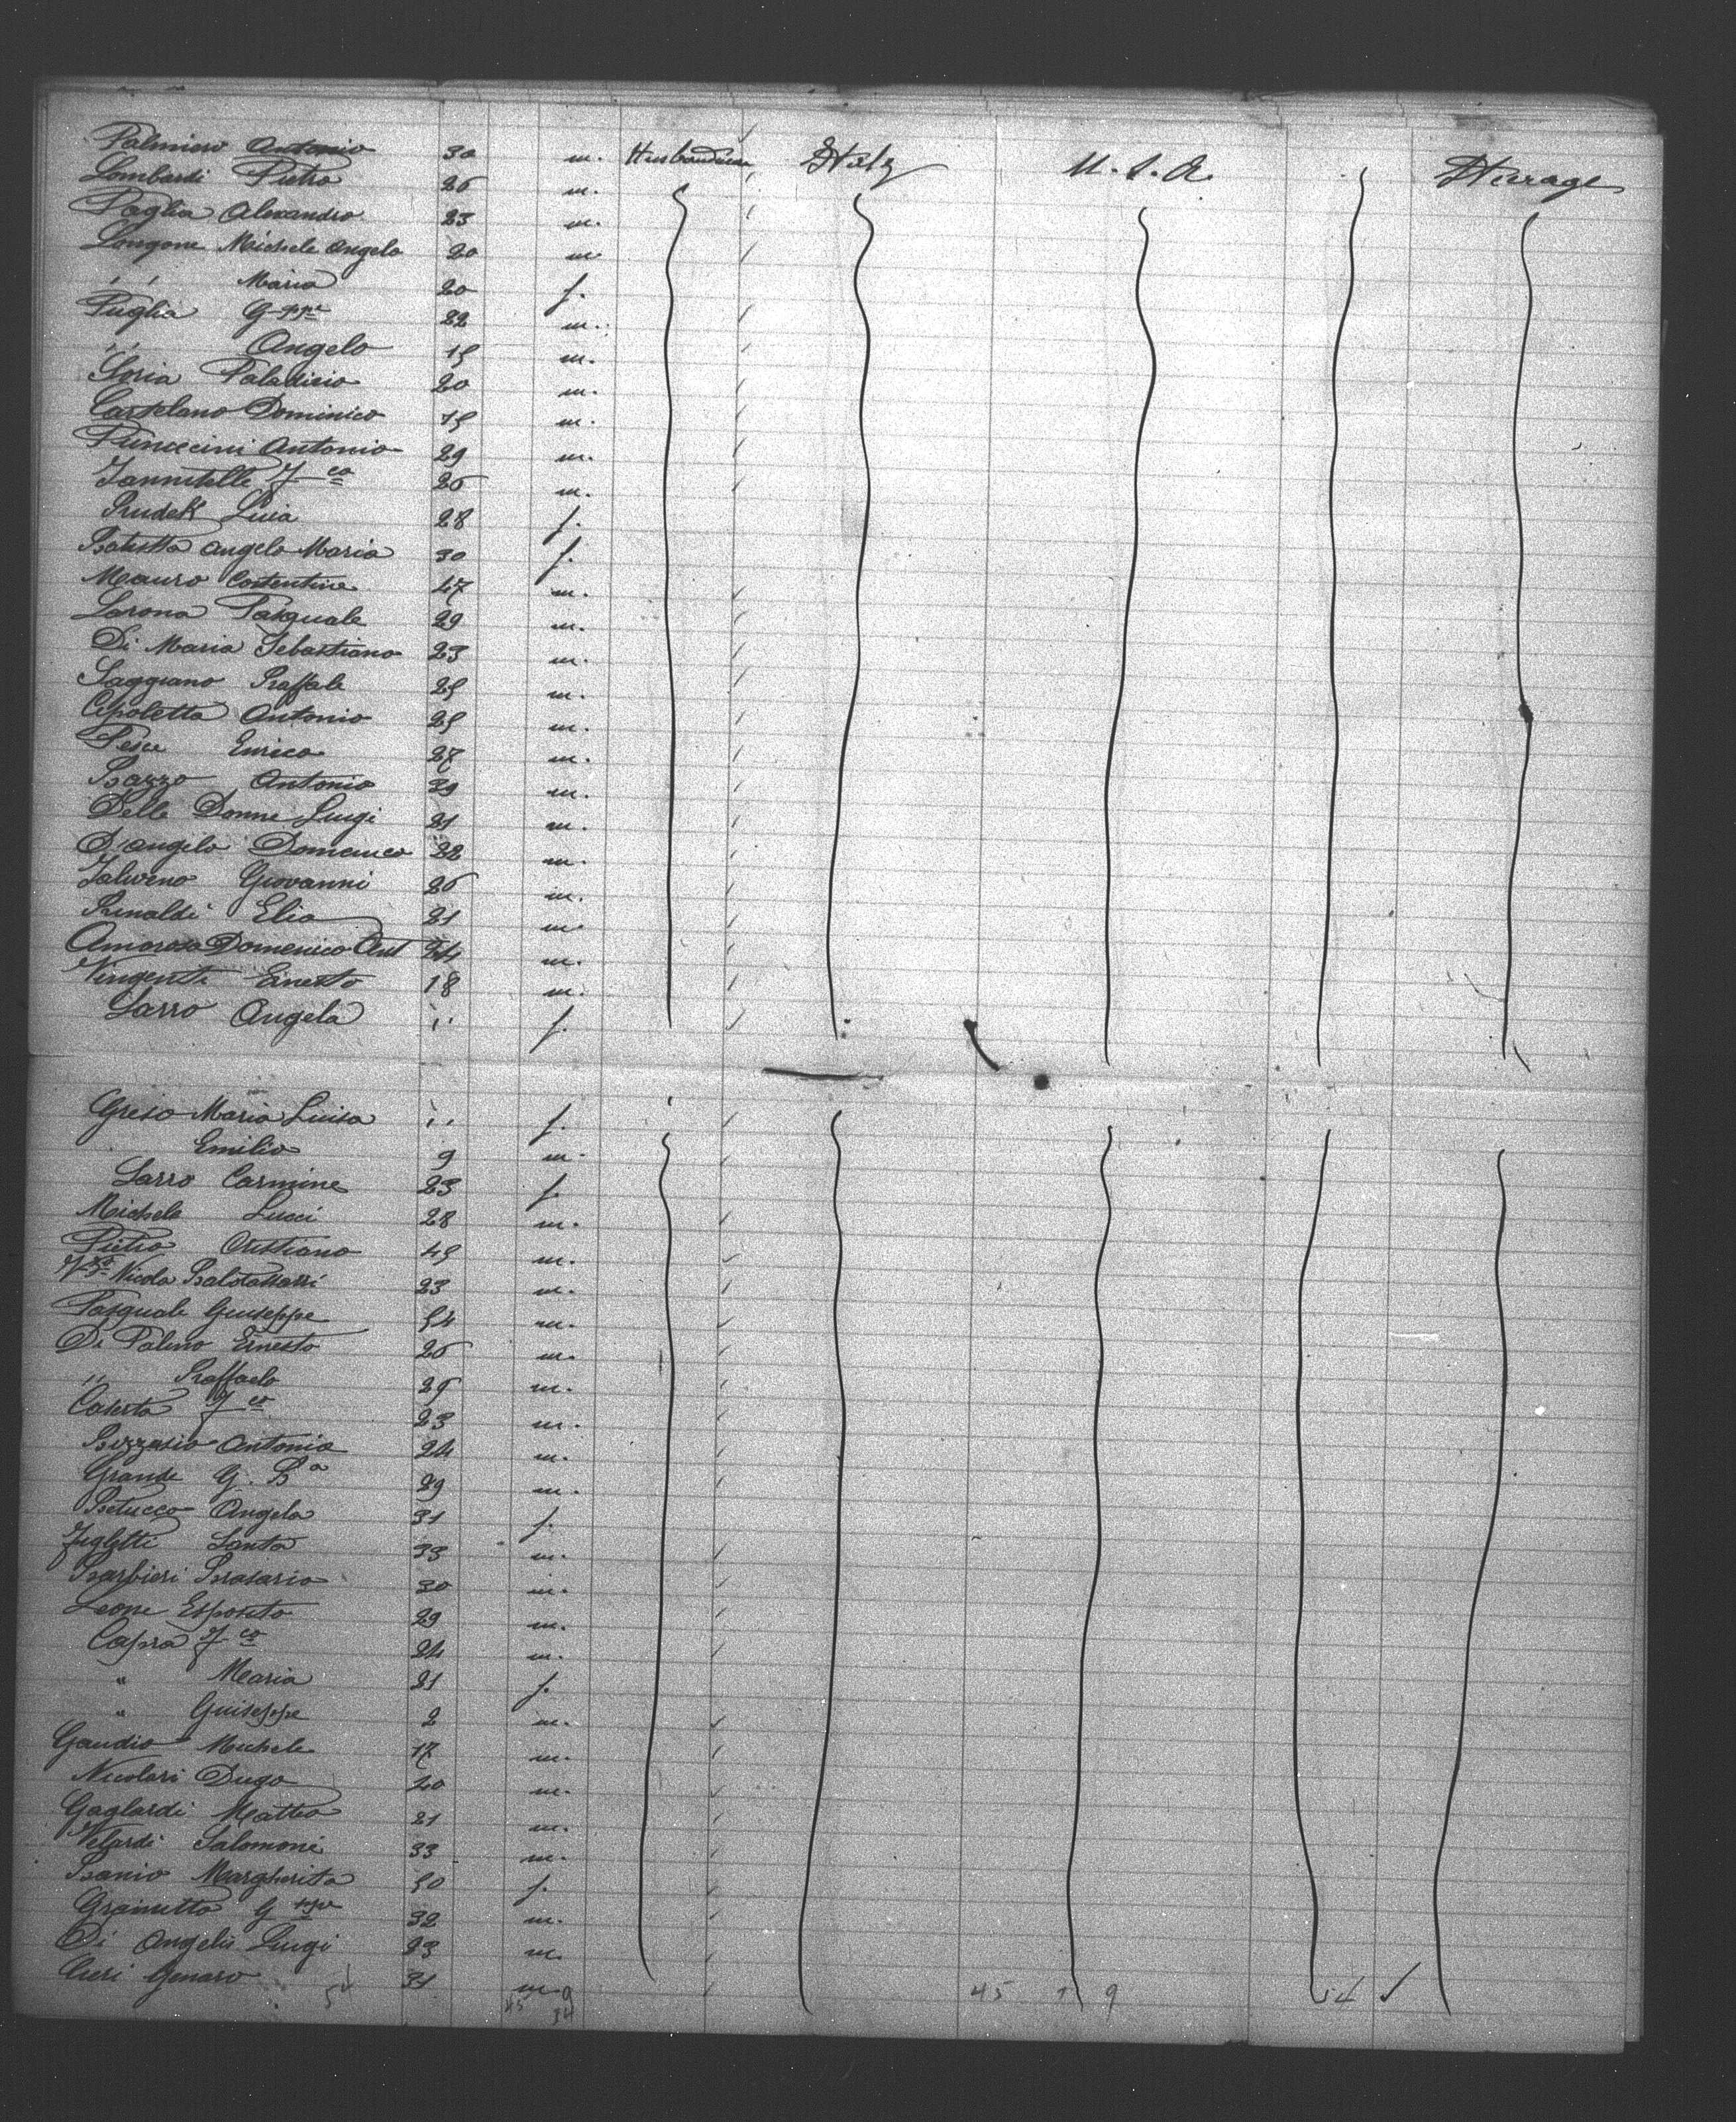 Palmiero Antonio 30 m. Husbandman Italy U.S.A. Steerage
Lombardi Pietro 26 m.
Paglia Alexandro 23 m.
Longone Michele Angelo 20 m
" " Maria 20 f.
Puglia G-ppe 22 m.
" " Angelo 15 m.
Soria 20 m.
Castelano Dominico 15 m.
Antonio 29 m.
Iannitelli F co 26 m.
28 f.
Batista Angela Maria 30 f.
Mauro Costentino 47 m.
Sarona Pasquale 29 m.
Di Maria Sebastiano 23 m.
Saggiano Raffale 25 m.
Cipoletta Antonio 25 m.
Pesce Enrico 27 m.
Bazzo Antonio 39 m.
Delle Donne Luigi 21 m.
D'Angelo Domenico 22 m.
Giovanni 26 m.
Rinaldi Elia 21 m
Amorosa Domenico Ant 24 m.
Vingenti Ernesto 18 m.
Sarro Angela " f.
Greso Maria Luisa " f.
Emilio 9 m.
Sarro Carmine 23 f.
Michele Lucci 28 m.
Pietro Cristiano 45 m.
Nicola 23 m.
Pasquale Guiseppe 54 m.
Di Palmo Ernesto 26 m.
" Raffaelo 29 m.
Caserta F co 23 m.
Antonio 24 m.
Grande G. B a 29 m.
Betucco Angela 31 f.
Santo 33 m.
Barbieri 30 m.
Leone Esposito 29 m.
Capra F co 24 m.
" Maria 21 f.
" Guiseppe 2 m.
Gaudio Michele 17 m.
Nicolari Dugo 20 m.
Gaglardi Matteo 21 m.
Velardi Salomone 33 m.
Banio Margherita 50 f.
Grametta G ppe 32 m.
Di Angelis Luigi 23 m.
Cieri Genaro 54 31 m. 9
45 54 45 + 9 54 ✓